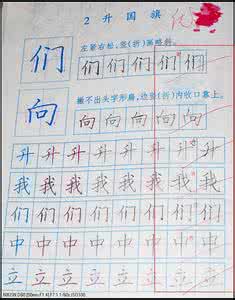 2 升国旗 优
们 左紧右松,竖(折)画略斜。
们们们们们
向 撇不出头字形扁,边竖(折)内收口靠上。
向向向向向
升升升升升升升升
我我我我我我我我
们们们们们们们们
中中中中中中中中
立立立立立立立立